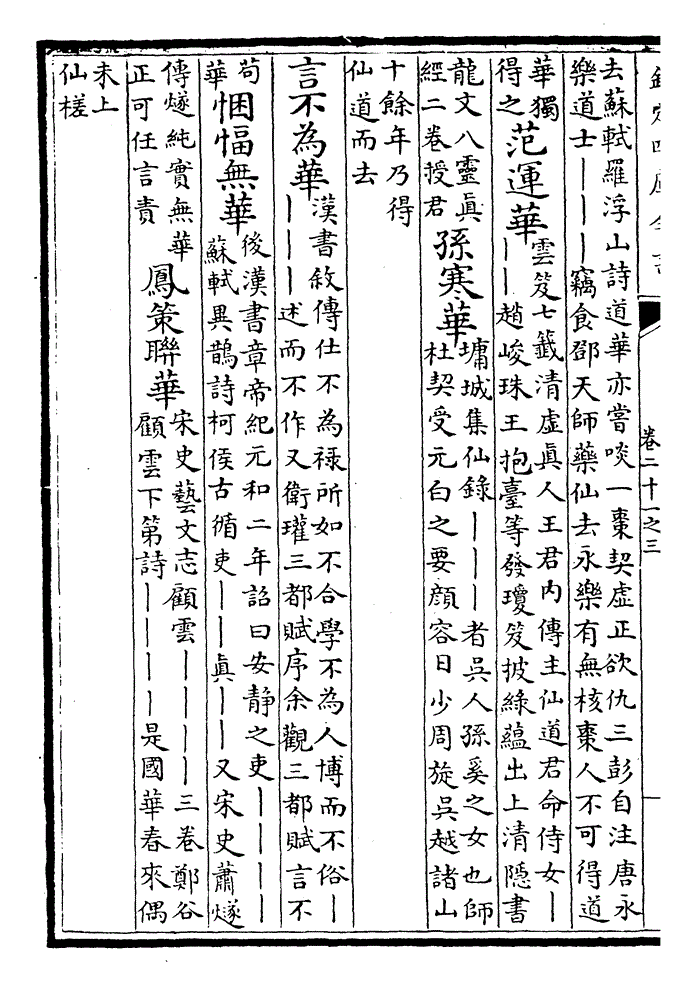 欽定四庫全書
卷二十一之三
去蘇軾羅浮山詩道華亦嘗啖一棗契虛正欲仇三彭自注唐永
樂道士｜｜｜竊食鄧天師藥仙去永樂有無核棗人不可得道
華獨
得之
范運華
雲笈七籤清虛真人王君内傳主仙道君命侍女｜
｜｜趙峻珠王抱臺等發瓊笈披綠蘊出上清隱書
龍文八靈眞
經二卷授君
孫寒華
墉城集仙錄｜｜｜者吳人孫奚之女也師
杜契受元白之要顔容日少周旋吳越諸山
十餘年乃得
仙道而去
言不為華
漢書敘傳仕不為祿所如不合學不為人博而不俗｜
｜｜｜述而不作又衛瓘三都賦序余觀三都賦言不
苟
華
悃愊無華
後漢書章帝紀元和二年詔曰安靜之吏｜｜｜｜
蘇軾異鵲詩柯侯古循吏｜｜眞｜｜又宋史蕭燧
傳燧純實無華
正可任言責
鳳策聯華
宋史藝文志顧雲｜｜｜｜三卷鄭谷
顧雲下第詩｜｜｜｜是國華春來偶
未上
仙槎